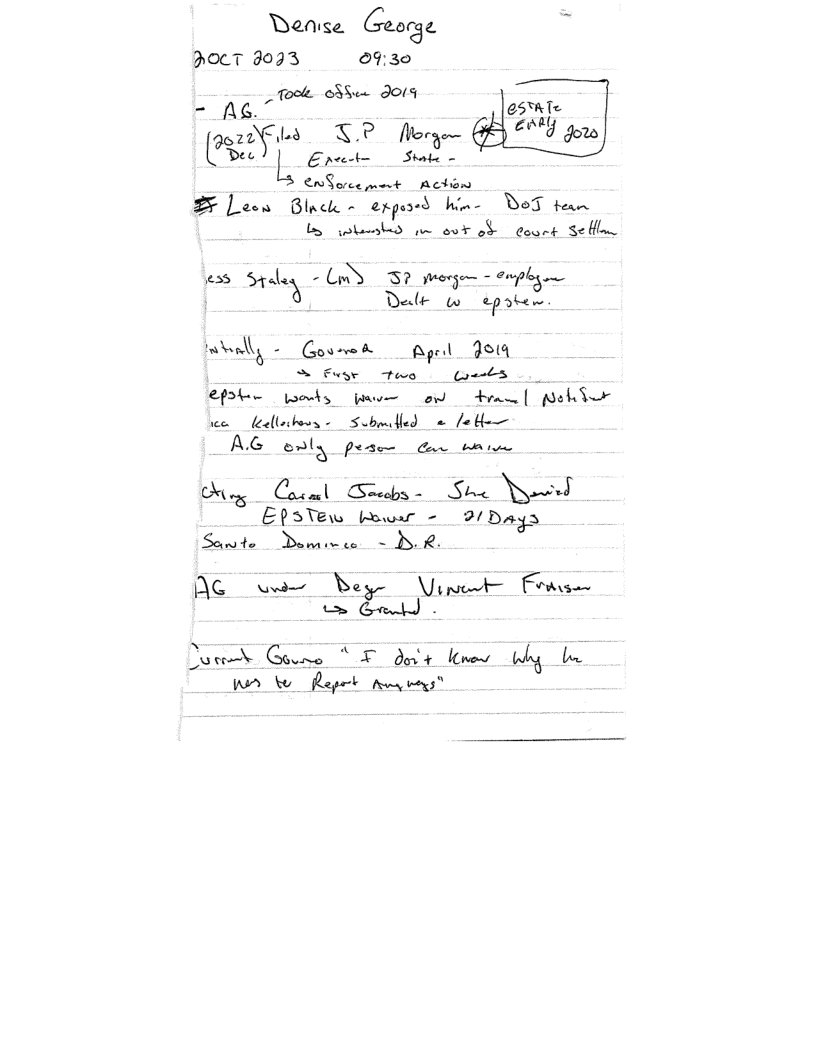 Denise George
2 OCT 2023 09:30
- Took office 2019
- AG.
ESTATE
EARly 2020
(2022 Dec) Filed J.P Morgan
State -
↳ enforcement Action
Leon Black - exposed him - DOJ team
↳ interested in out of court settlm
ess Staley - (m) JP Morgan - employee
Dealt w epstein.
ntially - Governor April 2019
→ First two weeks
epstein wants waiver on travel Notifict
ica Kellerhaus - submitted a letter
A.G only person can waive
cting Carol Jacobs - She Denied
EPSTEIN Waiver - 21 DAYS
Santo Domingo - D.R.
AG under Vincent
↳ Granted.
Current "I don't know why he
to Report Anyways"